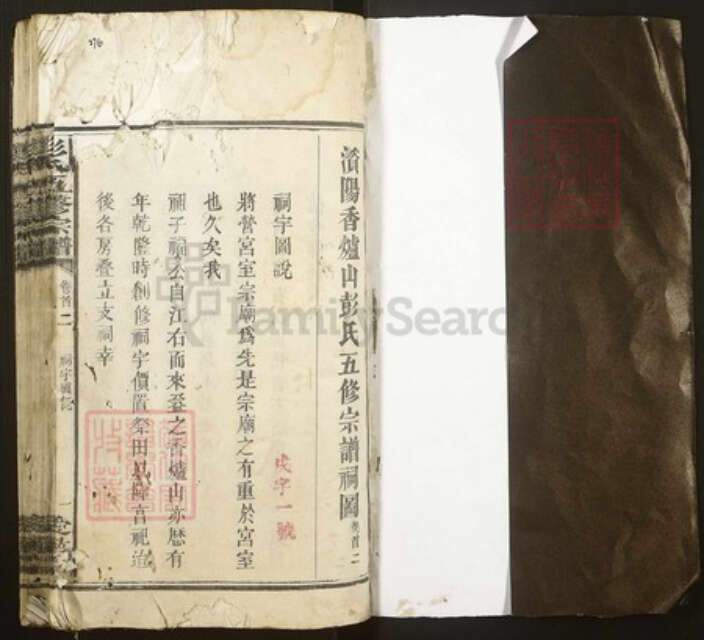 濱陽香爐山彭氏五修宗譜祠圖 卷首二
祠宇圖說
將營宮室宗廟爲先是宗廟之有重於宮室
也久矣我
祠子祠公自江右而來發之香爐山亦歷有
年乾隆時創修祠宇價置祭田具陳言祀迨
後各房叠立支祠幸
戌字一號
彭氏五修宗譜
卷首二
祠宇圖說
一
FamilySearch